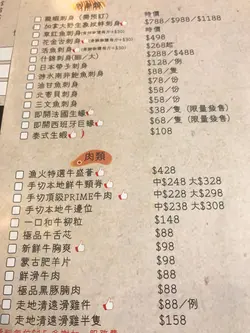 龍蝦刺身(需預訂) 時價
加拿大野生象拔蚌刺身 $788/$988/$1188
刺身 時價
花金古刺身 $498
活魚刺身 $268起
什錦刺身(細/大) $288/$488
日本帶子刺身 $128/例
游水南非鮑魚刺身 $88/隻
油甘魚刺身 $78/份
大西貢刺身 $58/份
三文魚刺身 $58/份
即開法國生蠔 $38/隻(限量發售)
即開西班牙巨蠔 $68/隻(限量發售)
泰式生蝦 $108
肉類
漁火特選牛盛薈 $428
手切本地鮮牛頸脊 中$248 大$328
手切頂級PRIME牛肉 中$228 大$298
手切本地牛邊位 中$238 大$308
一口和牛柳粒 $148
極品牛舌芯 $88
新鮮牛胸爽 $98
蒙古肥羊片 $98
鮮滑牛肉 $88
極品黑豚腩肉 $88
走地清遠滑雞件 $88/例
走地清遠滑雞半隻 $158